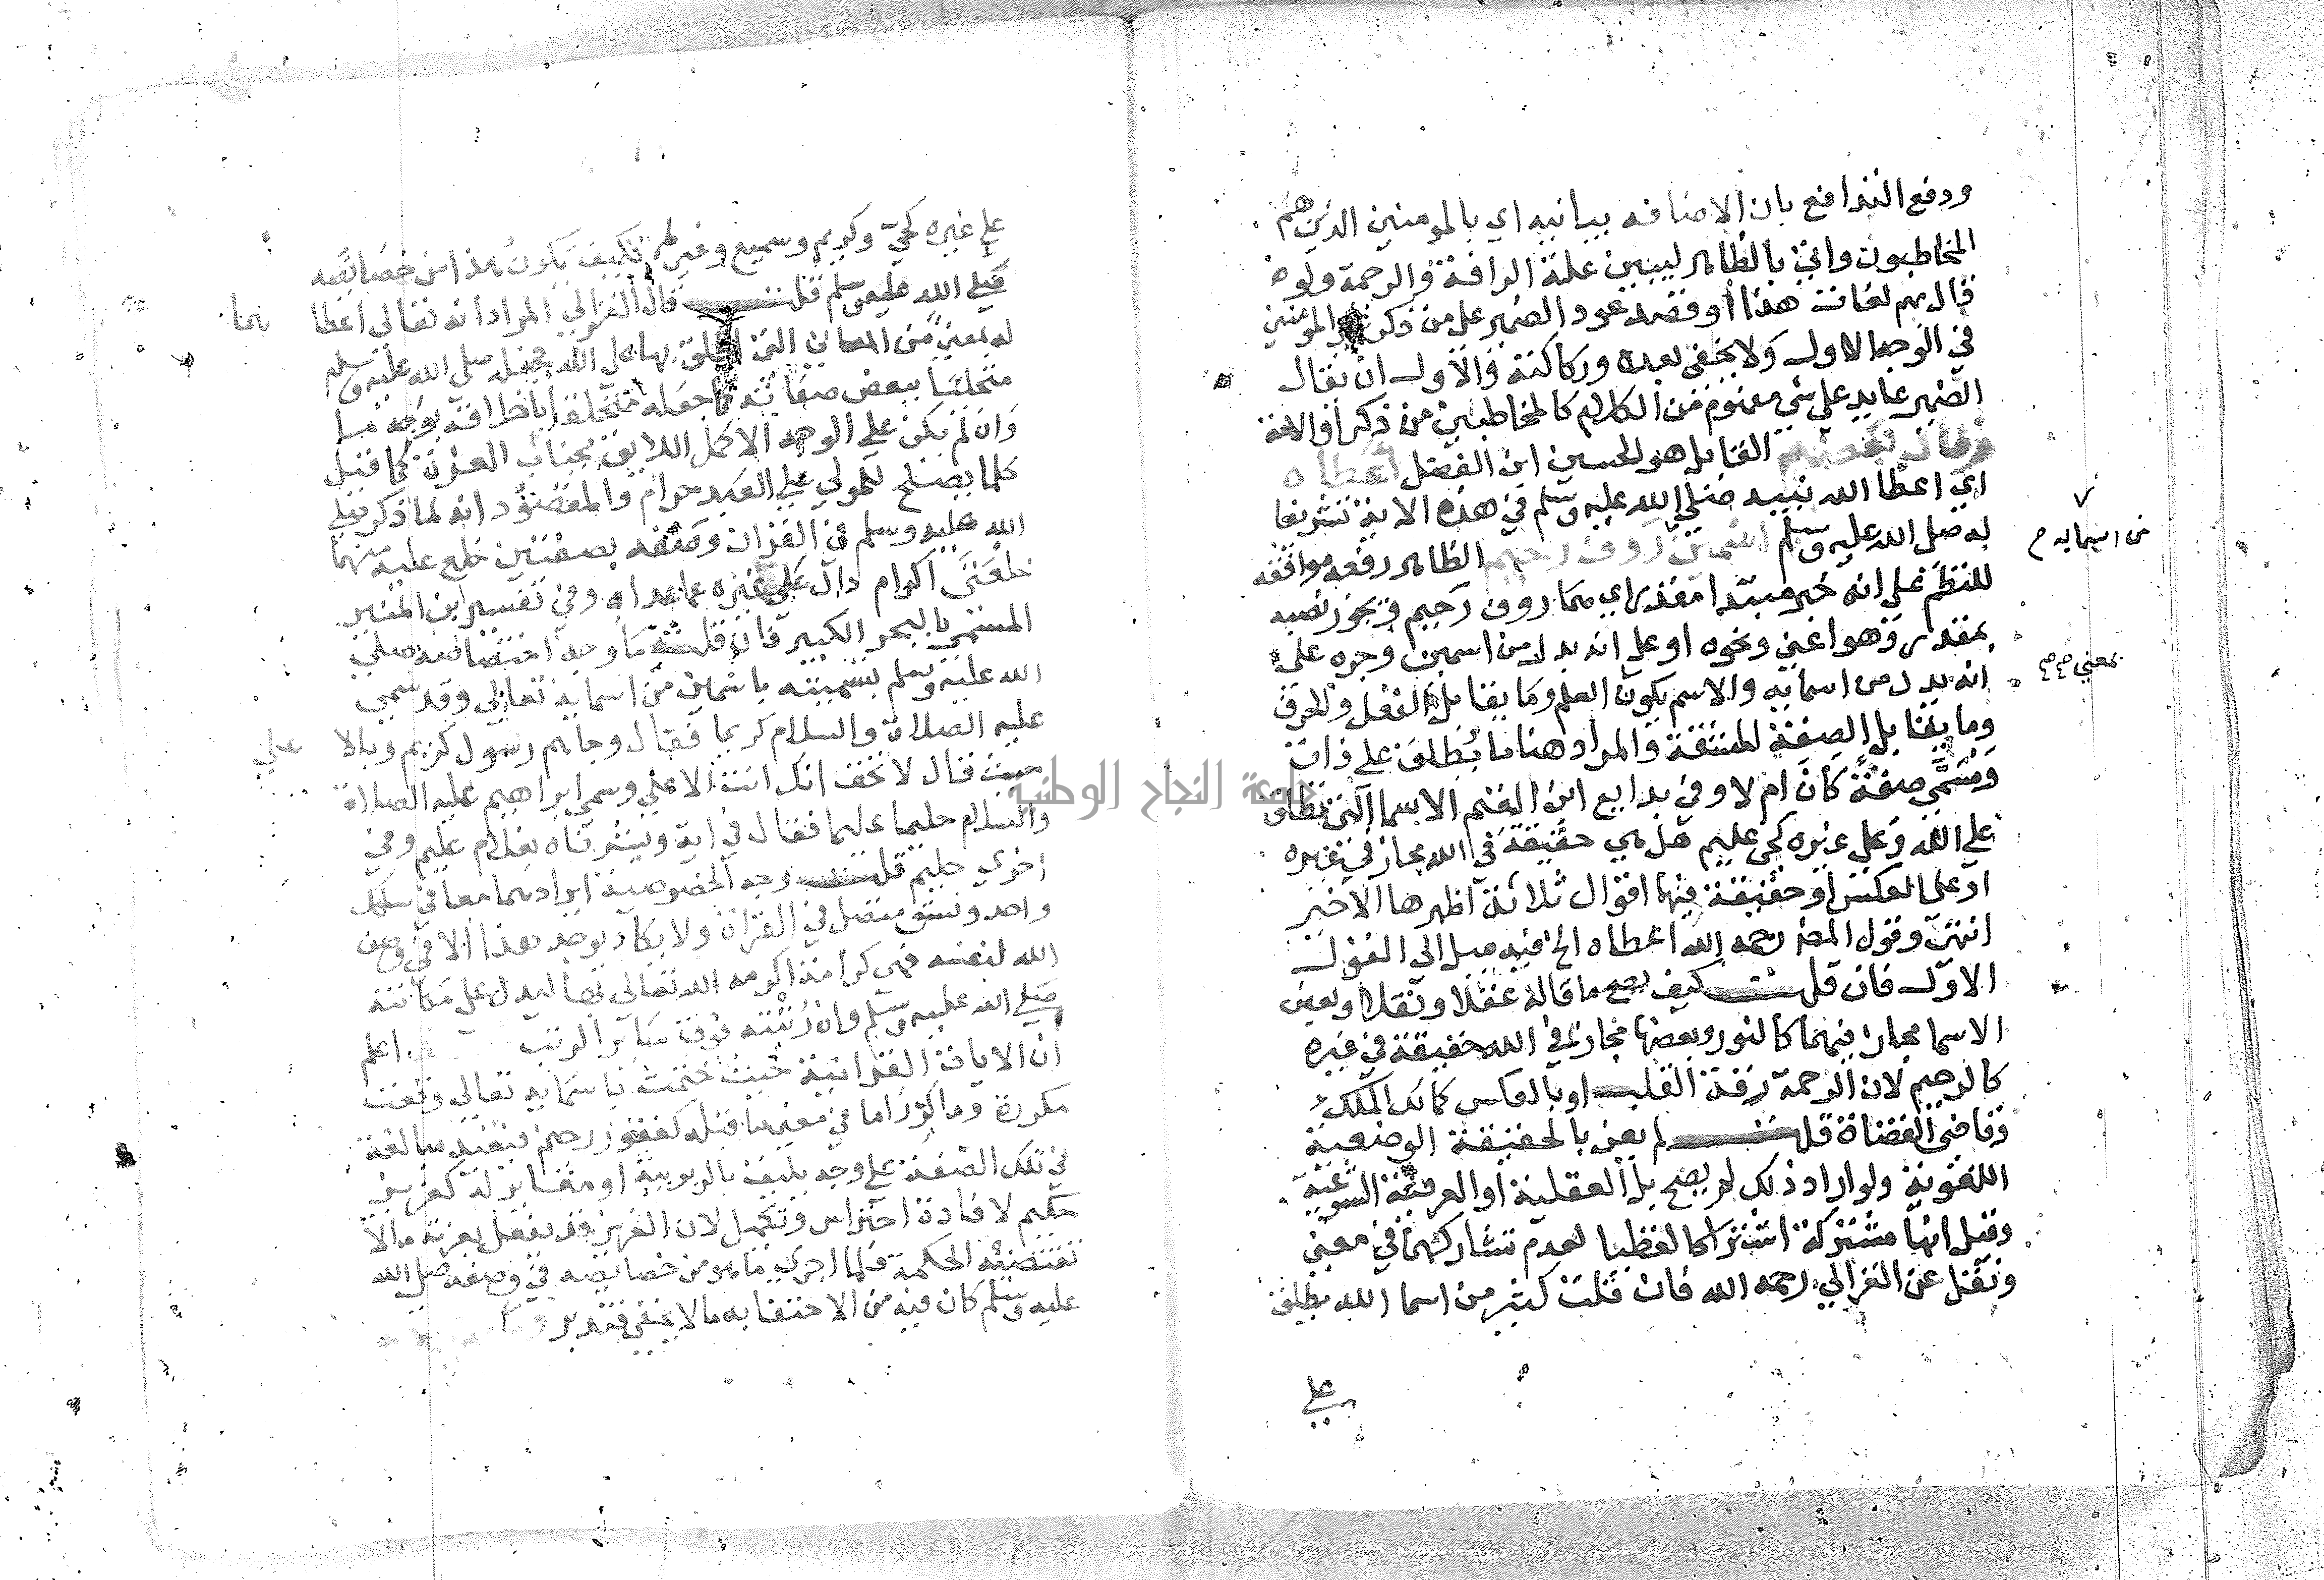 ودفع التدافع بان الاضافه بيانيه اي بالمومنين الذين هم
المخاطبون واتي بالظاهر ليبين علة الرافة والرحمة ولوه
قال بهم لفات هذا او قصد عود الضمير على من ذكر المومنين
في الوجه الاول ولا يخفى بعده وركاكته والاول ان يقال
الضمير عايد على شي مفهوم من الكلام كالمخاطبين من ذكر او الامة
القايل هو الحسين ابن الفضل اعطاه
اي اعطا الله نبيه صلى الله عليه وسلم في هذه الاية تشريفا
له صلى الله عليه وسلم اسمين روف رحيم الظاهر رفعه موافقه
من اسمايه م
للنظم على انه خبر مبتدا مقدر اي هما روف رحيم ويجوز نصبه
بمقدر وهو اعني ونحوه او على انه بدل من اسمين وجره على
انه بدل من اسمايه والاسم يكون العلم وما يقابل الفعل والحرف
بمعنى
وما يقابل الصفة المشتقة والمراد هنا ما يطلق على ذات
ومسمى صفة كان ام لا وفي بدايع ابن القيم الاسما التي تطلق
على الله وعلى غيره كحي عليم هل هي حقيقة في الله مجاز في غيره
او على العكس او حقيقة فيهما اقوال ثلاثة اظهرها الاخير
انتهى وقول المص رحمه الله اعطاه الخ فيه ميل الى القول
الاول فان قلت كيف يصح ما قاله عقلا ونقلا وبعض
الاسما مجاز فيهما كالنور وبعضها مجاز في الله حقيقة في غيره
كالرحيم لان الرحمة رقة القلب او بالعكس كمالك الملك
وقاضي القضاة قلت لم يعن بالحقيقة الوضعية
اللغوية ولو اراد ذلك لم يصح بل العقلية او العرفية الشرعية
وقيل انها مشتركة اشتراكا لفظيا لعدم تشاركهما في معنى
ونقل عن الغزالي رحمه الله فان قلت كثير من اسما الله يطلق
على
على غيره كحي وكريم وسميع وغيرهم فكيف يكون هذا من خصايصه
صلى الله عليه وسلم قلت قال الغزالي المراد انه تعالى اعطا
هما
له بمعنى من المعاني التي اطلق بها على الله فجعله صلى الله عليه وسلم
متحليا ببعض صفاته فاجعله متخلقا باخلاقه بوجه ما
وان لم يكن على الوجه الاكمل اللايق بجناب العزة كما قيل
كلما يصلح للمولى على العبد حرام والمقصود انه لما ذكر صلى
الله عليه وسلم في القران وصفه بصفتين خلع عليه منهما
خلعتي اكرام دال على غيره عما عداه وفي تفسير ابن المنير
المسمى بالبحر الكبير فان قلت ما وجه اختصاصه صلى
الله عليه وسلم بتسميته باسمين من اسمايه تعالى وقد سمى
عليه الصلاة والسلام كريما فقال وجاهم رسول كريم وبالا
على
حيث قال لا تخف انك انت الاعلى وسمى ابراهيم عليه الصلاة
والسلام حليما عليما فقال في اية وبشرناه بغلام عليم وفي
اخرى حليم قلت وجه الخصوصية ايرادهما معا في سلك
واحد ونسق متصل في القران ولا يكاد يوجد هذا الا في وصف
الله لنفسه فهي كرامة اكرمه الله تعالى بها ليدل على مكانته
صلى الله عليه وسلم وان رتبته فوق ساير الرتب اعلم
ان الايات القرانية حيث ختمت باسمايه تعالى وقعت
مكررة وما كرر اما في معنى ما قبله كغفور رحيم فيفيد مبالغة
في تلك الصفة على وجه يليق بالربوبية او مغاير له كعزيز
حكيم لافادة احتراس وتكميل لان العزيز قد يفعل بعزته ما لا
تقتضيه الحكمة فلما اجرى ما هو من خصايصه في وصفه صلى الله
عليه وسلم كان فيه من الاحتفا به ما لا يخفى فتدبر
جامعة النجاح الوطنية